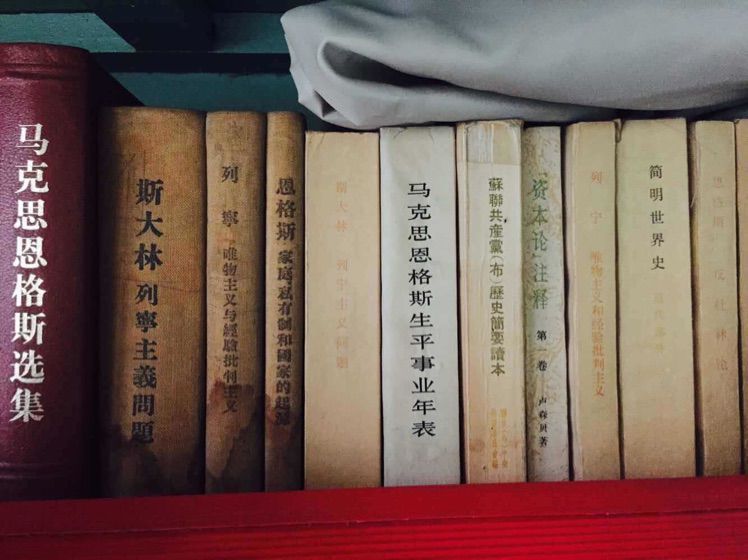 马克思恩格斯选集
斯大林 列寧主義問題
列寧 唯物主义与經驗批判主义
恩格斯 家庭、私有制和國家的起源
斯大林 列宁主义问题
马克思恩格斯生平事业年表
蘇聯共產黨(布)歷史簡要讀本
资本论注释 第一卷 卢森贝著
列宁 唯物主义和经验批判主义
简明世界史
恩格斯 反杜林论